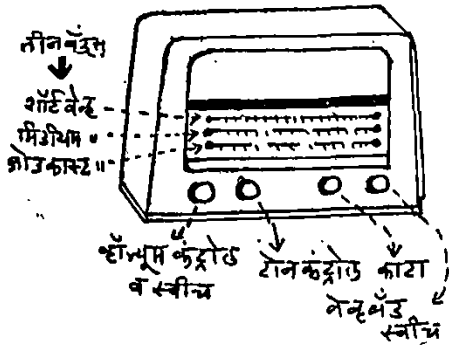 तीन बँड्स
शॉर्ट वेव्ह
मिडीयम "
ब्रोडकास्ट "
व्हॉल्यूम कंट्रोल
व स्वीच
टोन कंट्रोल
काटा
वेव्ह बँड
स्वीच